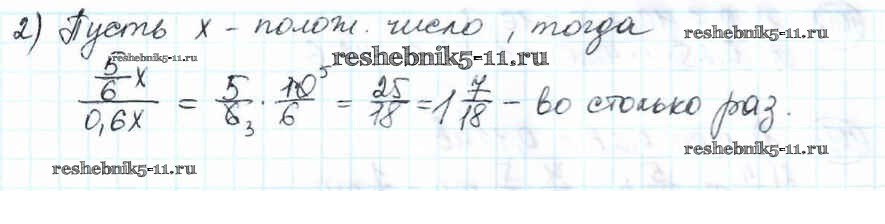 2) Пусть x - полож. число, тогда reshebnik5-11.ru
reshebnik5-11.ru reshebnik5-11.ru
5/6 x / 0,6x = 5/6 3 · 10 5/6 = 25/18 = 1 7/18 - во столько раз.
reshebnik5-11.ru reshebnik5-11.ru